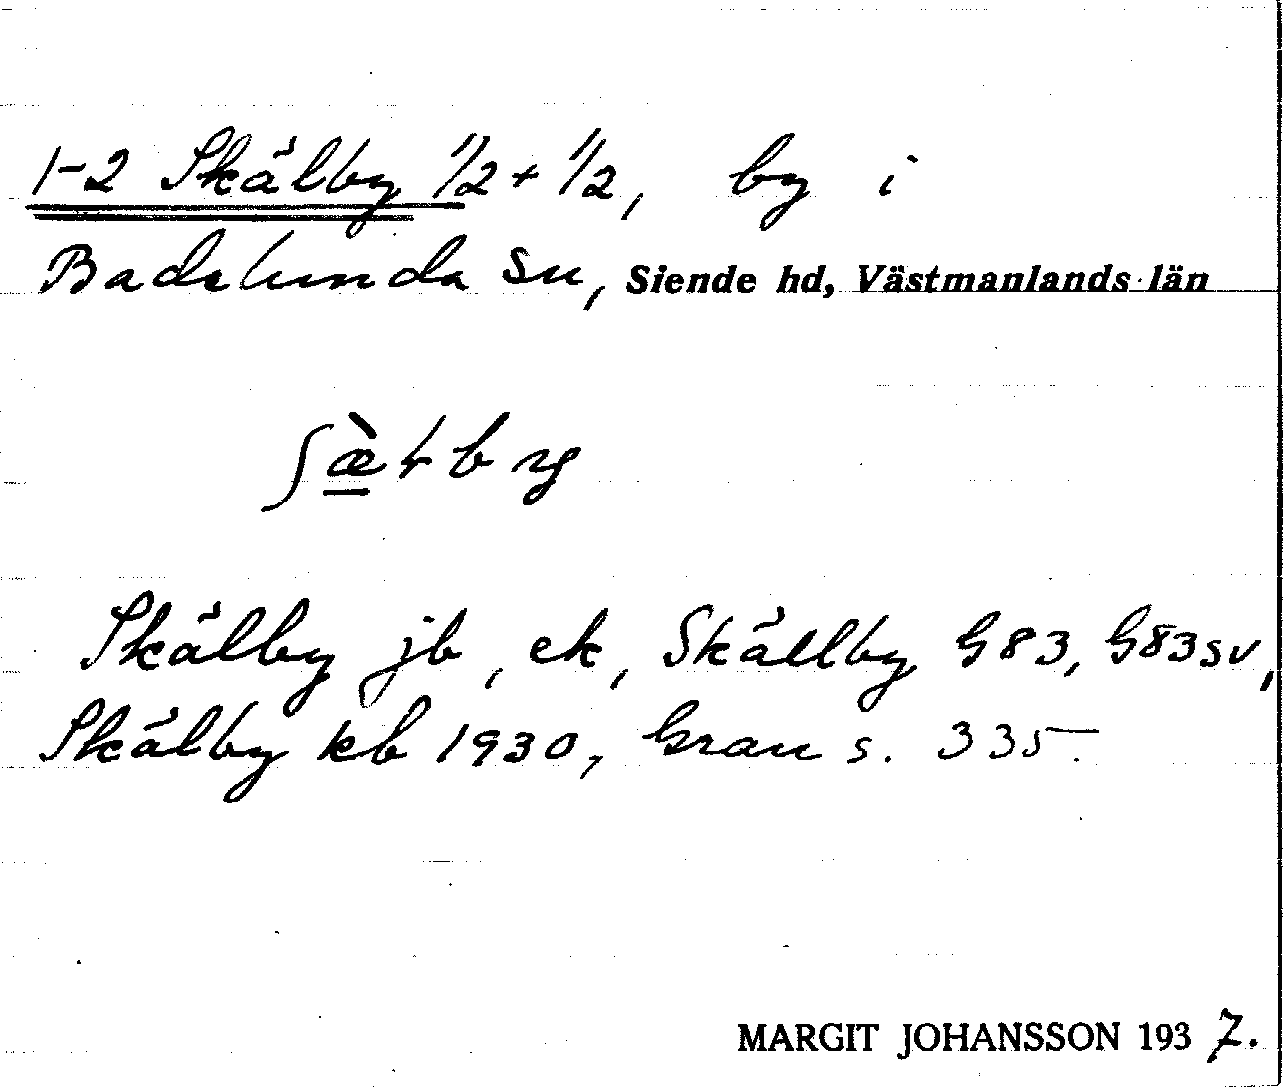 1-2 Skälby 1/2 + 1/2, by i
Badelunda sn, Siende hd, Västmanlands län
ʃæ̀łby
Skälby jb, ek, Skällby G83, G83sv,
Skälby kb 1930, Grau s. 335.
MARGIT JOHANSSON 1937.